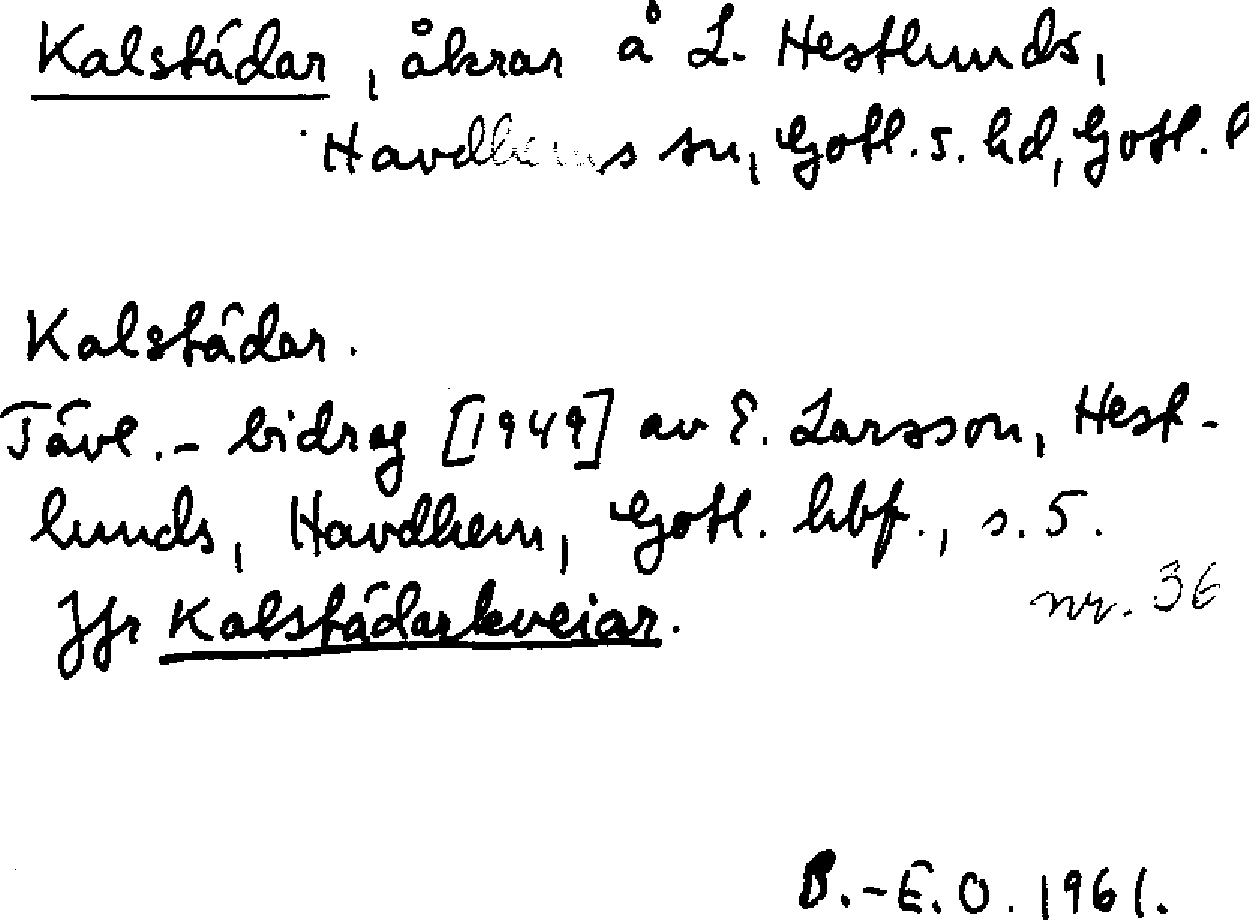 Kalstädar, åkrar å L. Hestlunds,
Havdhems sn, Gotl. s. hd, Gotl. l
Kalstädar.
Tävl.-bidrag [1949] av E. Larsson, Hest-
lunds, Havdhem, Gotl. hbf., s. 5.
nr. 36
Jfr Kalstädarkveiar.
B.-E.O. 1961.